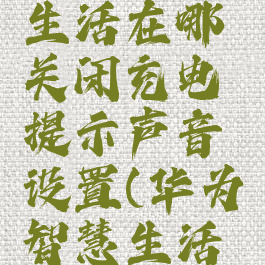 生活在哪
关闭充电
提示声音
设置(华为
智慧生活